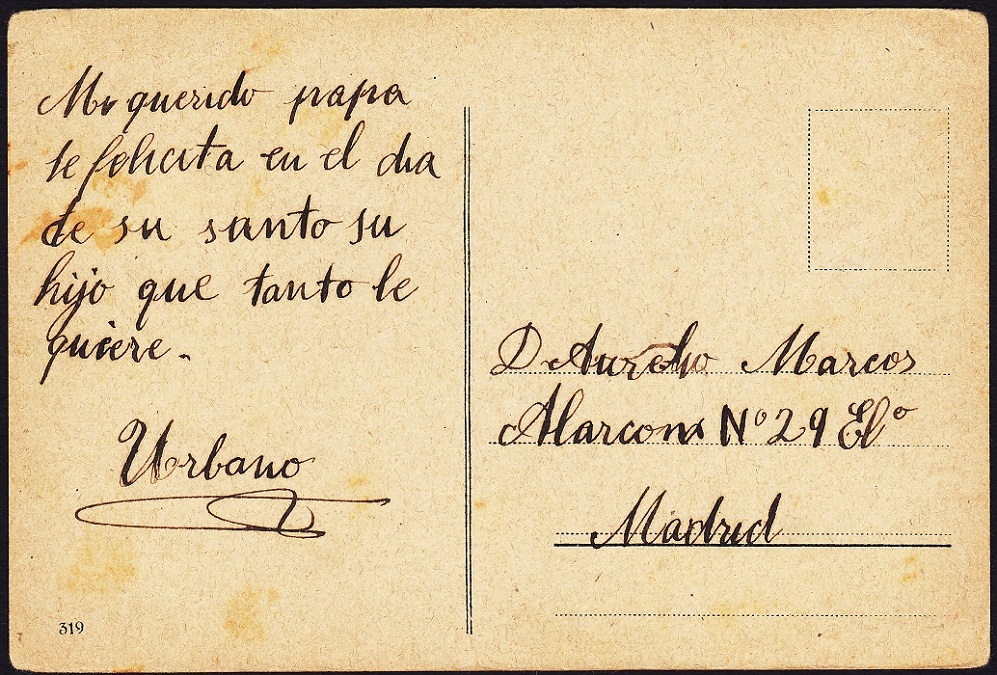 Mi querido papa
le felicita en el dia
de su santo su
hijo que tanto le
quiere.
Urbano
319
D Aurelio Marcos
Alarcon Nº 29 Elº
Madrid